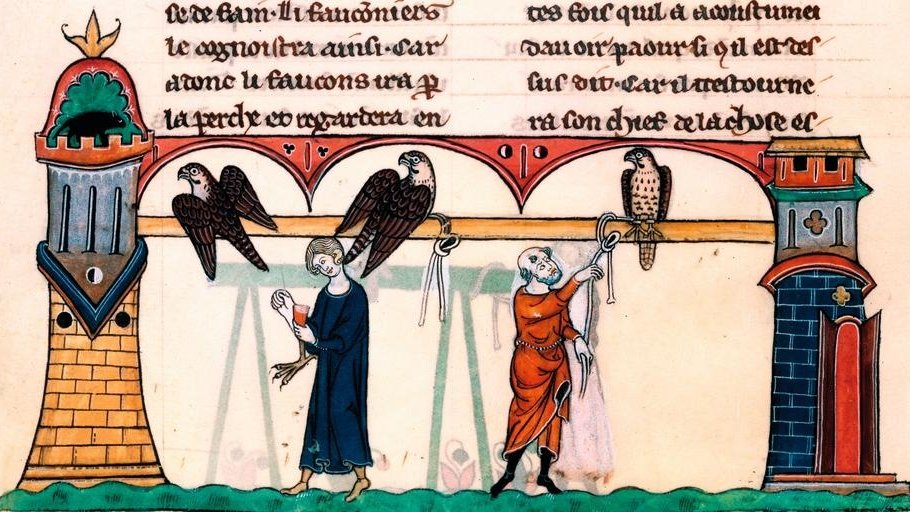 se de faim. Li fauconiers
le cognoistra ainsi. Car
adonc li faucons ira p
la perche et regardera en
tes fois quil a acoustumei
davoir paour si q il est des
sus dit. Car il trestourne
ra son chief de la chose es